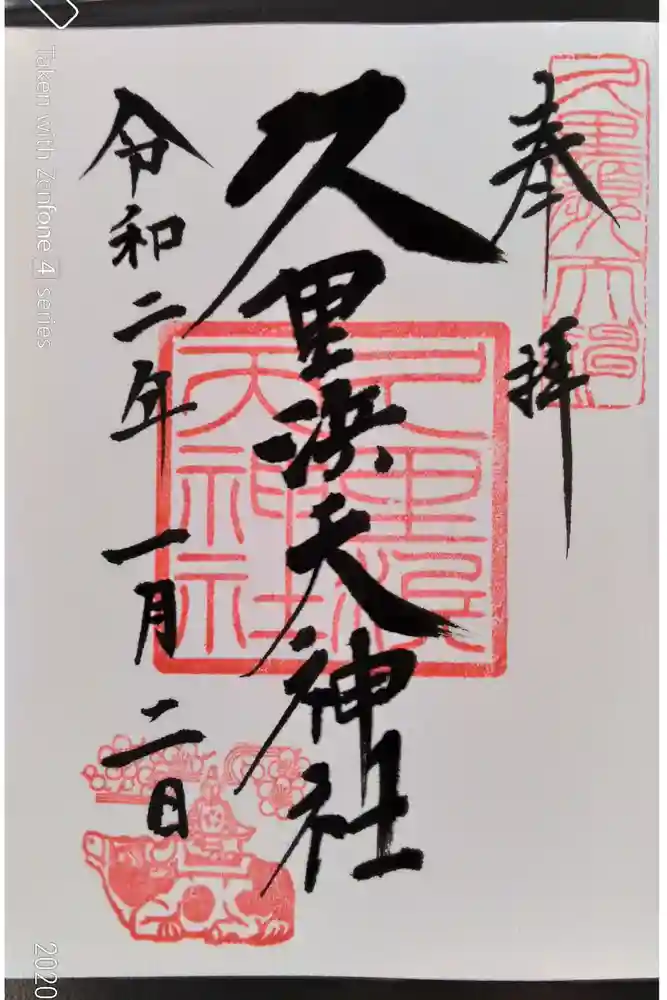 奉拝
久里浜天神社
令和二年一月二日
久里浜
天神社
Taken with Zenfone 4 series
2020